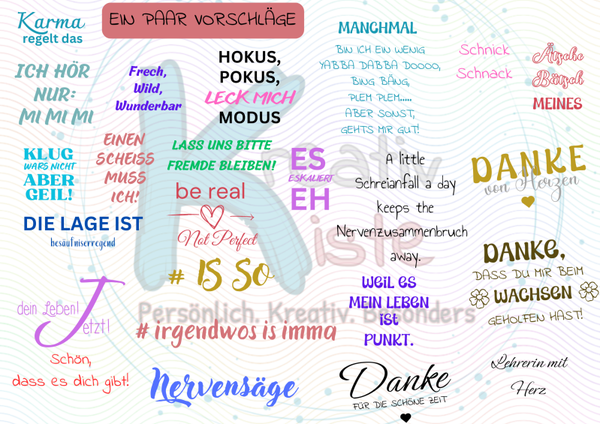 EIN PAAR VORSCHLÄGE
Karma
regelt das
ICH HÖR
NUR:
MI MI MI
Frech,
Wild,
Wunderbar
HOKUS,
POKUS,
LECK MICH
MODUS
MANCHMAL
BIN ICH EIN WENIG
YABBA DABBA DOOOO,
BING BÄNG,
PLEM PLEM.....
ABER SONST,
GEHTS MIR GUT!
Schnick
Schnack
Ätsche
Bätsch
MEINES
KLUG
WARS NICHT
ABER
GEIL!
EINEN
SCHEISS
MUSS
ICH!
LASS UNS BITTE
FREMDE BLEIBEN!
ES
ESKALIERT
EH
A little
Schreianfall a day
keeps the
Nervenzusammenbruch
away.
DANKE
von Herzen
be real
Not Perfect
DIE LAGE IST
besäufniserregend
# IS SO
WEIL ES
MEIN LEBEN
IST
PUNKT.
DANKE,
DASS DU MIR BEIM
WACHSEN
GEHOLFEN HAST!
dein Leben!
Jetzt!
# irgendwos is imma
Schön,
dass es dich gibt!
Nervensäge
Danke
FÜR DIE SCHÖNE ZEIT
Lehrerin mit
Herz
Kreativ
Kiste
Persönlich. Kreativ. Besonders